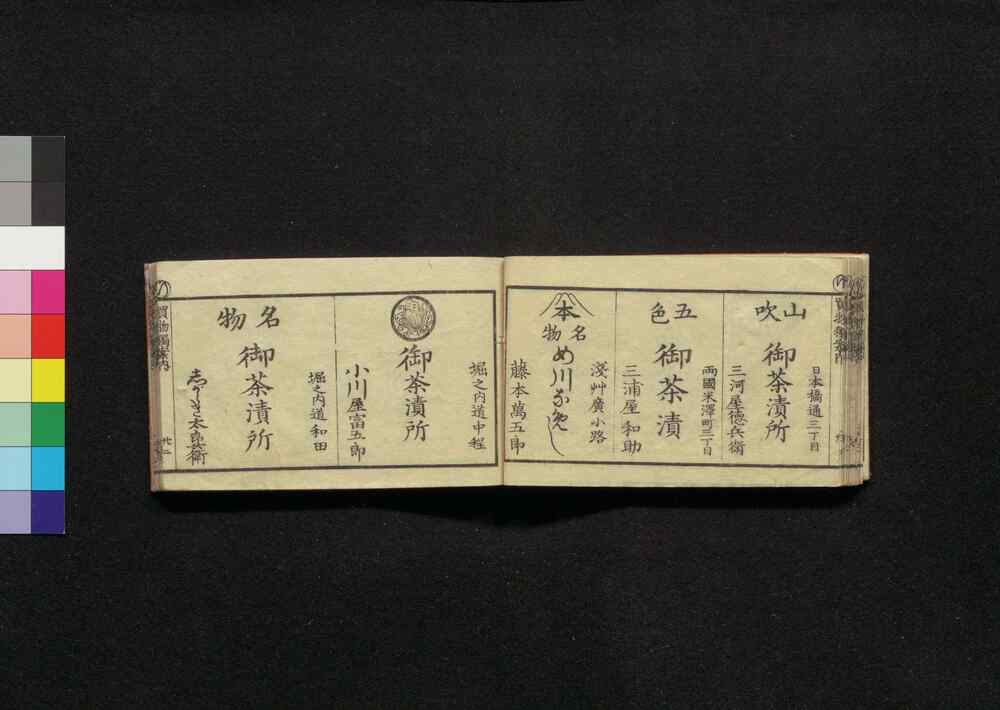 日本橋通三丁目
山吹
御茶漬所
三河屋徳兵衛
両國米澤町三丁目
五色
御茶漬
三浦屋和助
淺艸廣小路
本
名物
め川なめし
藤本萬五郎
堀之内道中程
御茶漬所
小川屋富五郎
堀之内道和田
名物
御茶漬所
しがらき太郎兵衛
買物獨案内